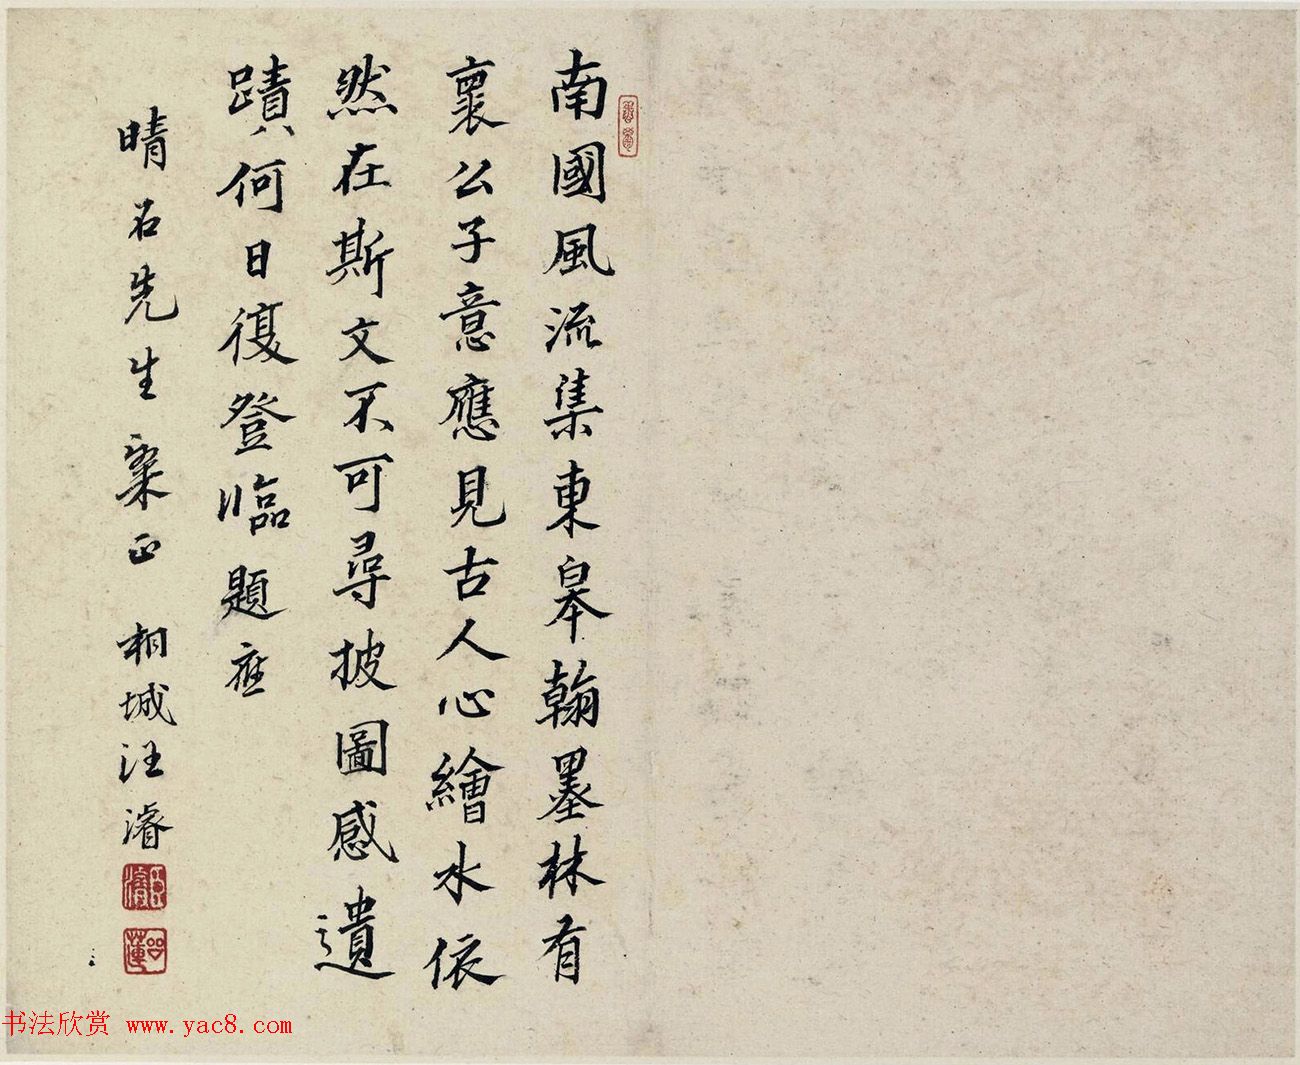 南國風流集東皋翰墨林有
褱公子意應見古人心繪水依
然在斯文不可尋披圖感遺
蹟何日復登臨題應
晴石先生粲正 相城汪濬
书法欣赏 www.yac8.com